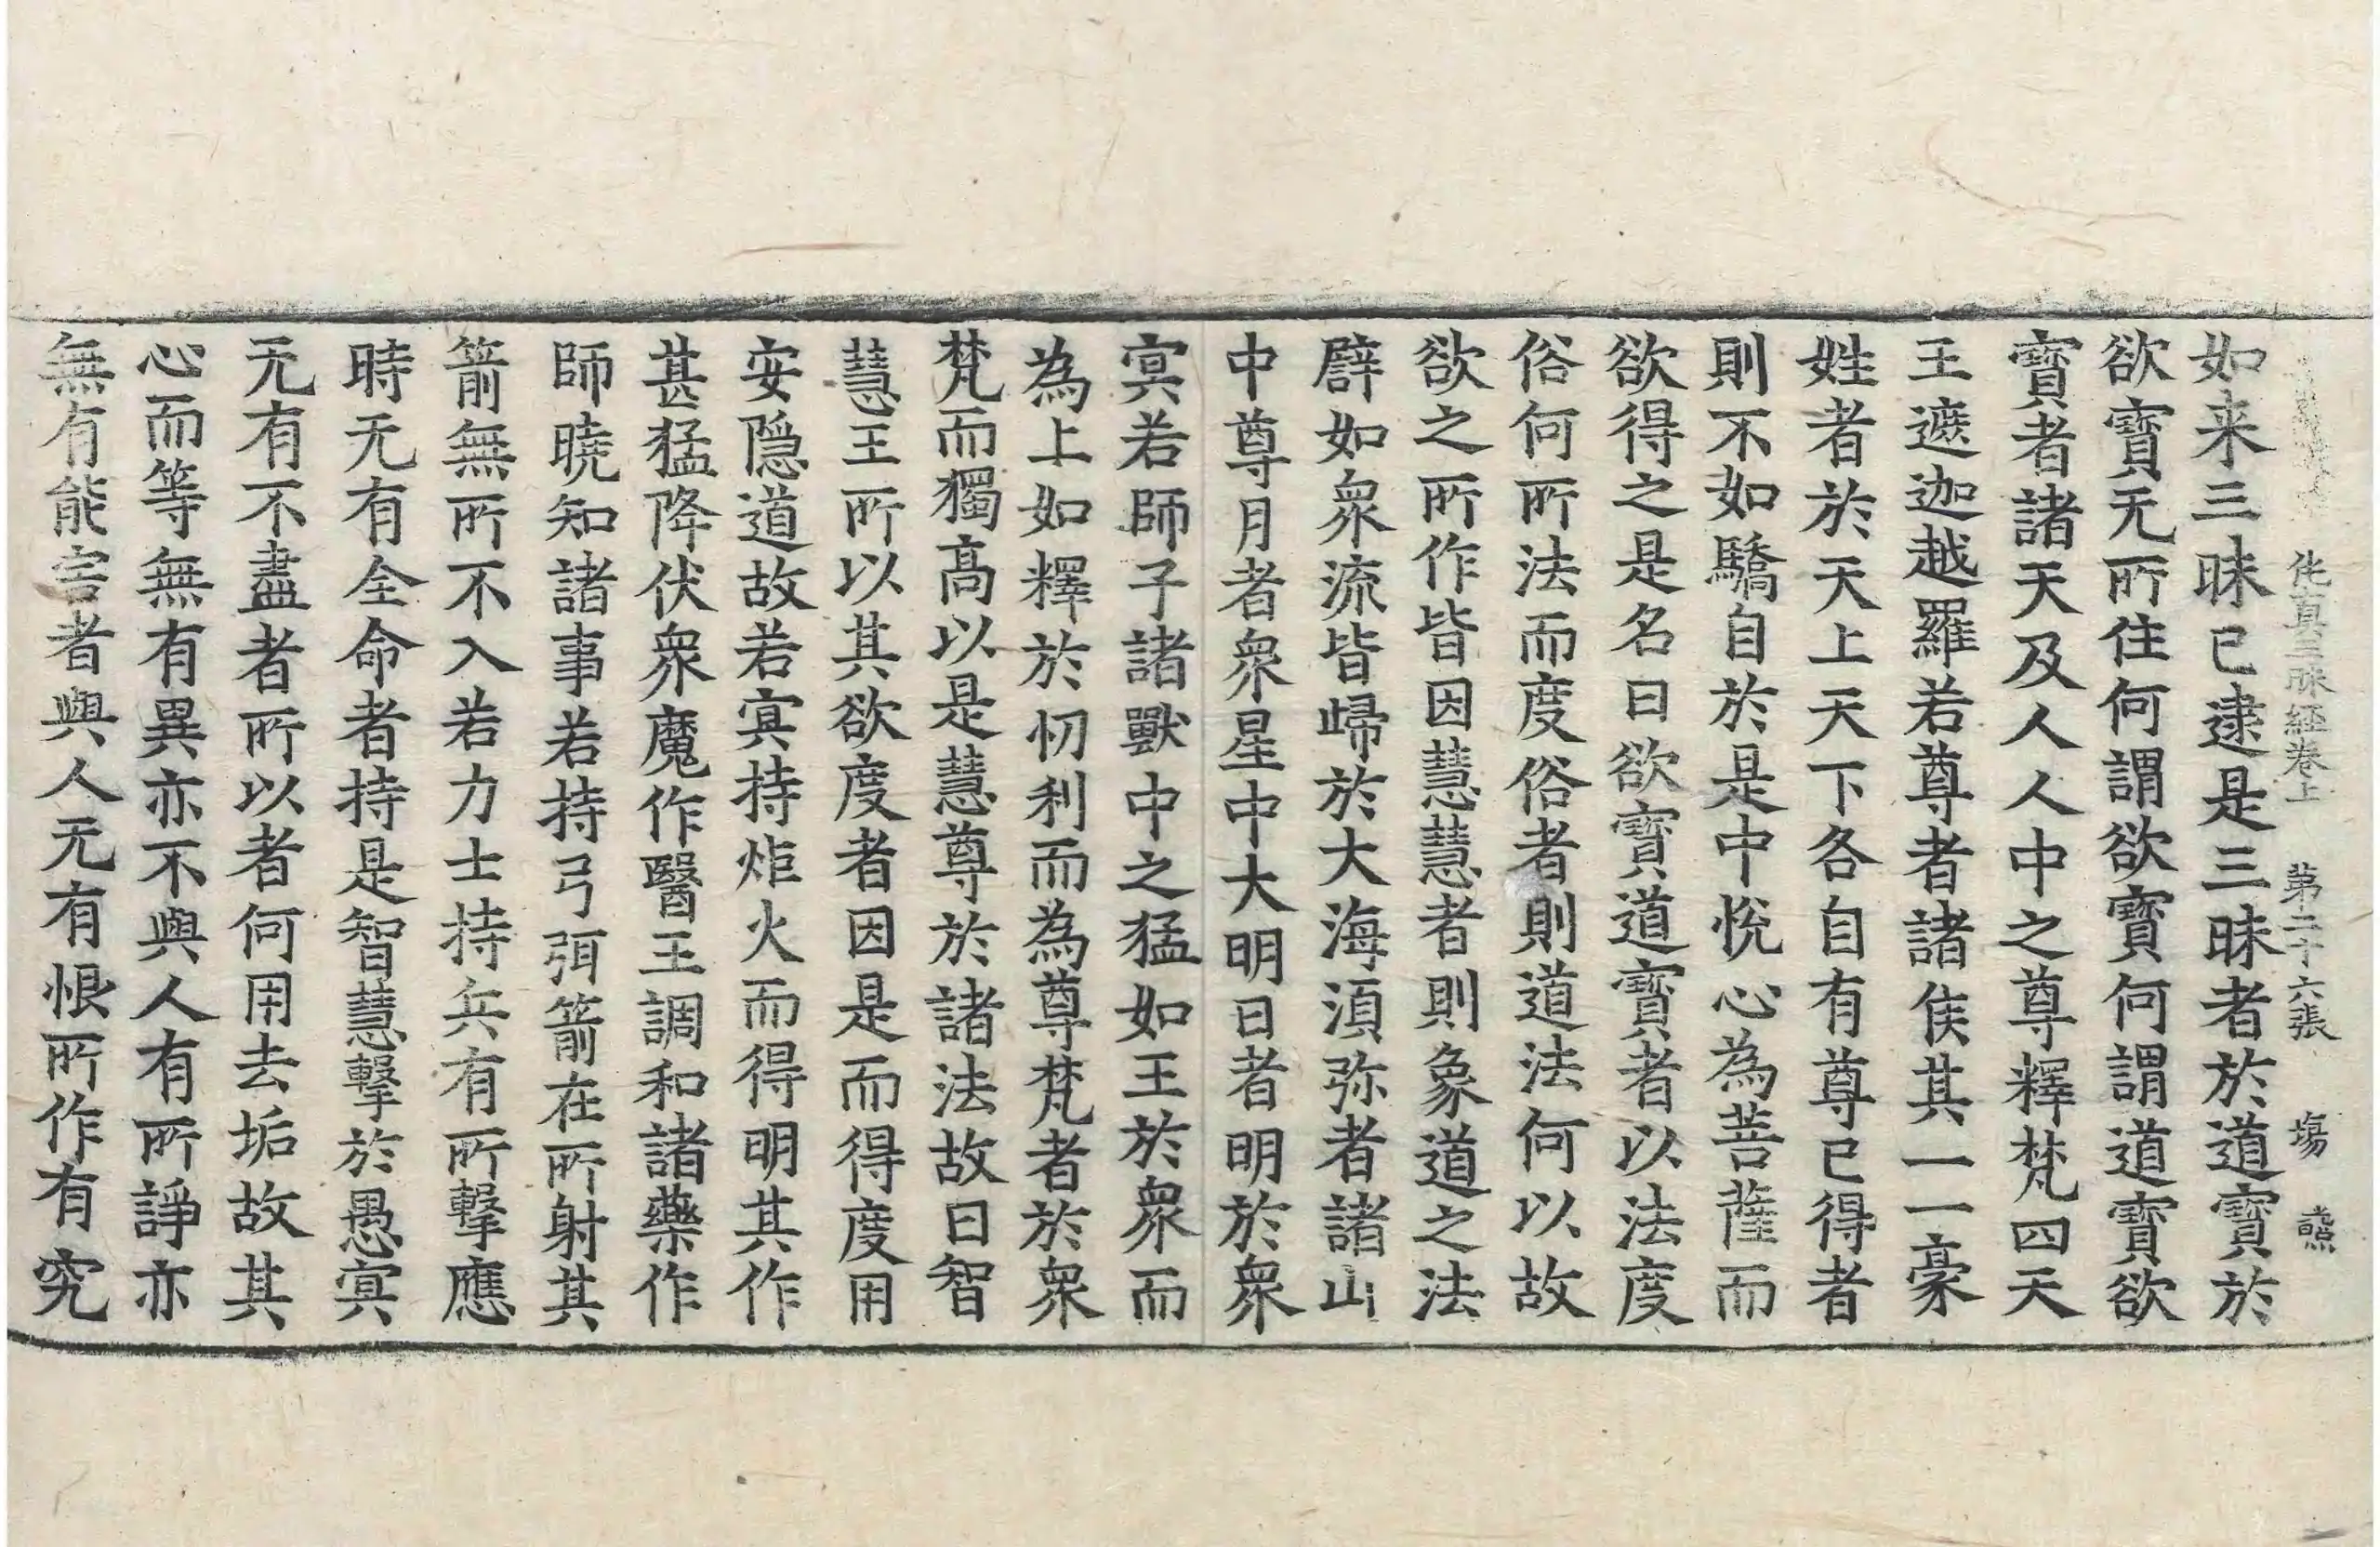 他真三昧經卷上 第二十六張 塲
如来三昧已逮是三昧者於道寶於
欲寶无所住何謂欲寶何謂道寶欲
寶者諸天及人人中之尊釋梵四天
王遮迦越羅若尊者諸侯其一一豪
姓者於天上天下各自有尊已得者
則不如驕自於是中悅心為菩薩而
欲得之是名曰欲寶道寶者以法度
俗何所法而度俗者則道法何以故
欲之所作皆因慧慧者則象道之法
譬如眾流皆歸於大海湏弥者諸山
中尊月者眾星中大明日者明於眾
冥若師子諸獸中之猛如王於眾而
為上如釋於忉利而為尊梵者於眾
梵而獨高以是慧尊於諸法故曰智
慧王所以其欲度者因是而得度用
安隱道故若冥持炬火而得明其作
甚猛降伏眾魔作醫王調和諸藥作
師曉知諸事若持弓弭箭在所射其
箭無所不入若力士持兵有所擊應
時无有全命者持是智慧擊於愚冥
无有不盡者所以者何用去垢故其
心而等無有異亦不與人有所諍亦
無有能害者與人无有恨所作有究